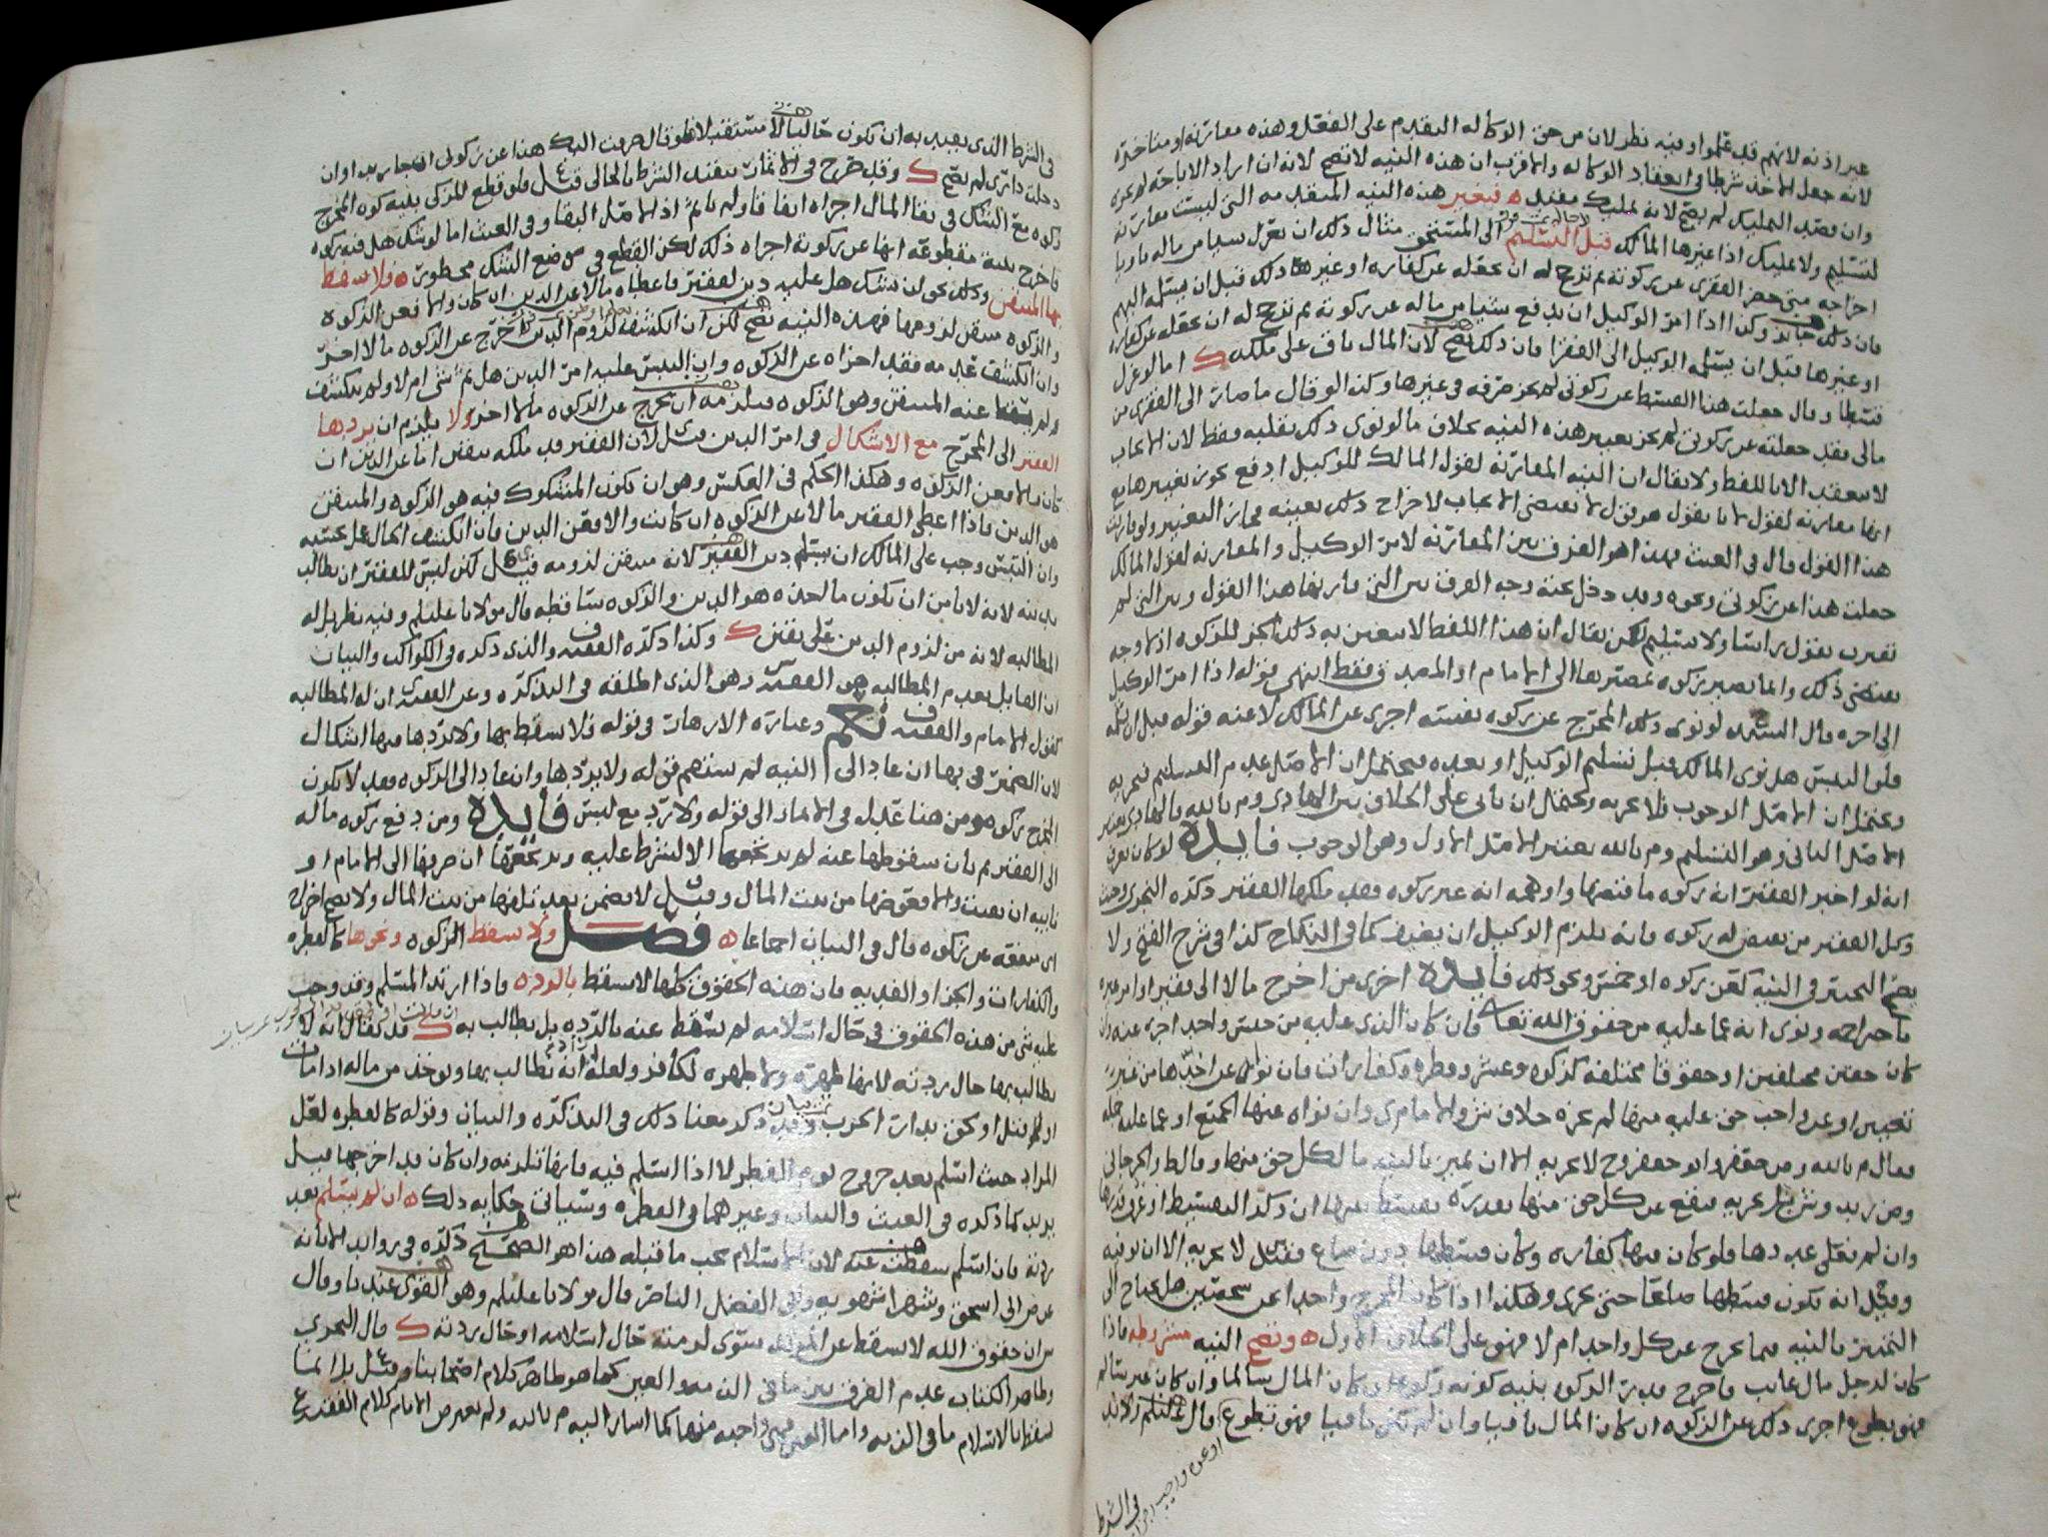 عبر اذنه لانهم قد عللوا وفيه نظر لان من حق الوكاله التقدم على الفعل وهذه مقارنة او متاخرة
لانه جعل الاخذ شرطا في انعقاد الوكاله والاقرب ان هذه النيه لا تصح لانه ان اراد الاباحه لم يجزه
وان قصد التمليك لم يصح لانه تمليك مقيد ه فتغير هذه النيه المتقدمه التي ليست مقارنة
لتسليم ولا تمليك اذا غيرها المالك قبل التسليم الى المستحق مثال ذلك ان يعزل شيا من ماله ناويا
اخراجه متى حضر الفقرى عن زكوته ثم ترجح له ان يجعله عن كفاره او غيرها ذلك قبل ان يسلمه اليهم
فان ذلك جايز وكذا اذا امر الوكيل ان يدفع شيا من ماله عن زكوته ثم ترجح له ان يجعله عن كفاره
او غيرها قبل ان يسلمه الوكيل الى الفقرا فان ذلك يصح لان المال باق على ملكه ك اما لو عزل
قسطا وقال جعلت هذا القسط عن زكوتي لم يجز صرفه في غيرها وكذا لو قال ما صار الى الفقرى من
مالي فقد جعلته عن زكوتي لم يجز تغيير هذه النيه بخلاف ما لو نوى ذلك بقلبه فقط لان الايجاب
لا ينعقد الا باللفظ ولا يقال ان النيه المقارنه لقول المالك للوكيل ادفع يجوز تغييرها مع
انها مقارنه لقول لانا نقول هو قول لا يقتضي الايجاب لاخراج ذلك بعينه فجاز التغيير ولو قارنت
هذا القول قال في الغيث فهذا هو الفرق بين المقارنه لامر الوكيل والمقارنه لقول المالك
جعلت هذا عن زكوتي ونحوه وقد دخل تحته وجه الفرق بين التي قارنها هذا القول وبين التي لم
تقترن بقول راسا ولا تسليم لكن يقال ان هذا اللفظ لا يتعين به ذلك الجز للزكوه اذ لا وجه
يقتضي ذلك وانما يصير زكوه بمصيرها الى الامام او المصدق فقط انتهى قوله اذا امر الوكيل
الى اخره قال السيد لو نوى ذلك المخرج عن زكوه نفسه اجزى عن المالك لا عنه قوله قبل ان يسلمه
فلو التبس هل نوى المالك قبل تسليم الوكيل او بعده فيحتمل ان الاصل عدم التسليم فيجزيه
ويحتمل ان الاصل الوجوب فلا يجزيه ويحتمل ان ياتي على الخلاف بين الهادي وم بالله فالهادي يعتبر
الاصل الثاني وهو التسليم وم بالله يعتبر الاصل الاول وهو الوجوب فايده لو كان يعرف
انه لو اخبر الفقير انه زكوه ما قبضها واوهمه انه غير زكوه فقد ملكها الفقير ذكره النجري وحيث
وكل الفقير من يقبض له زكوه فانه يلزم الوكيل ان يضيف كما في النكاح كذا في شرح الفتح ولا
يصح التخيير في النيه كعن زكوه او خمس ونحو ذلك فايده اخرى من اخرج مالا الى فقير او امر غيره
باخراجه ونوى انه عما عليه من حقوق الله تعالى فان كان الذي عليه من جنس واحد اجزه عنه وان
كان حقين مختلفين او حقوقا مختلفه كزكوه وعشر وفطره وكفارات فان نواه عن احدها من غير
تعيين او عن واجب حق عليه منها لم يجزه خلاف ش والامام ى وان نواه عنها الجمع او عما عليه جمله
فقال م بالله ومن حقص وابو جعفر وح لا يجزيه الا ان يميز بالنيه ما لكل حق منها وقال ط والجرجاني
وص زيد وش قيل يجزيه فيقع عن كل حق منها بقدره يقسط بينها ان ذكر التقسيط او عرف قدرها
وان لم يقل عددها فلو كان فيها كفاره وكان قسطها دون صاع فقيل لا يجزيه الا ان لو فيه
وقيل انه يكون قسطها صاعا حتى يجزى وهكذا اذا كان المخرج واحدا عن شخصين هل يحتاج الى
التمييز بالنيه فيما يخرج عن كل واحد ام لا فهو على الخلاف الاول ه وتصح النيه مشروطه فاذا
كان لرجل مال غايب فاخرج قدر الزكوه بنيه كونه زكوه ان كان المال سالما وان كان غير سالم
فهو تطوع اجزى ذلك عن الزكوه ان كان المال باقيا وان لم يكن باقيا فهو تطوع قال عليلم ولا بد
او عن واجب
في الشرط
في الشرط الذي يعيد به ان يكون حاليا لا مستقبلا فلو قال صرفت اليك هذا عن زكوتي ان جا زيد او ان
دخلت داري لم يصح ك وقد صرح في الاثمار بتقييد الشرط بالحالي قيل فلو قطع المزكي بنيه كون المخرج
زكوه مع الشك في بقا المال اجزاه اتفاقا ولم ياثم اذ الاصل البقا وفي الغيث اما لو شك هل فيه زكوه
فاخرج بنية مقطوعه انها عن زكوته اجزاه ذلك لكن القطع في موضع الشك محظور ه فلا يسقط
بها المتيقن وذلك نحو ان يشك هل عليه دين لفقير فاعطاه مالا عن الدين ان كان والا فعن الزكوه
والزكوه متيقن لزومها فهذه النيه تصح لكن ان انكشف لزوم الدين اخرج عن الزكوه مالا اخر
وان انكشف عدمه فقد اجزاه عن الزكوه وان التبس عليه امر الدين هل ثم شي ام لا ولم ينكشف
لم يسقط عنه المتيقن وهو الزكوه فيلزمه ان يخرج عن الزكوه مالا اخر ولا يلزم ان يردها
الفقير الى المخرج مع الاشكال في امر الدين قيل لان الفقير قد ملكه بيقين اما عن الدين ان
كان والا فعن الزكوه وهكذا الحكم في العكس وهو ان يكون المشكوك فيه هو الزكوه والمتيقن
هو الدين فاذا اعطى الفقير مالا عن الزكوه ان كانت والا فعن الدين فان انكشف الحال عمل بحسبه
وان التبس وجب على المالك ان يسلم دين الفقير لانه متيقن لزومه قيل لكن ليس للفقير ان يطالب
بدينه لانه لا يامن ان يكون ما اخذه هو الدين والزكوه ساقطه قال مولانا عليلم وفيه نظر بل له
المطالبه لانه من لزوم الدين على يقين ك وكذا ذكره الفقيه ف والذي ذكره في الكواكب والبيان
ان القايل بعدم المطالبه هو الفقيه س وهو الذي اطلقه في التذكره وعن الفقيه ى ان له المطالبه
كقول الامام والفقيه ف نجم وعبارة الازهار في قوله فلا يسقط بها ولا يردها فيها اشكال
لان الضمير في بها ان عاد الى النيه لم يستقم قوله ولا يردها وان عاد الى الزكوه فقد لا يكون
المخرج زكوه ومن هنا عدل في الاثمار الى قوله ولا ترد مع لبس فايده ومن دفع زكوه ماله
الى الفقير ثم بان سقوطها عنه لم يرتجعها الا لشرط عليه ويرتجعها ان صرفها الى الامام او
نايبه ان بقيت والا فعوضها من بيت المال وقيل لا يضمن بعد تلفها من بيت المال ولا يصح اخراج
اى منفعه عن زكوه قال في البيان اجماعا ه فصل ولا تسقط الزكوه ونحوها كالفطره
والكفارات والجزا والفديه فان هذه الحقوق كلها لا تسقط بالرده فاذا ارتد المسلم وقد وجب
عليه شي من هذه الحقوق في حال اسلامه لم يسقط عنه بالرده بل يطالب به ك قد يقال انه لا
يطالب بها حال ردته لانها طهره ولا طهره لكافر ولعله اراد انه يطالب بها ويوخذ من ماله اذا مات
او قتل او لحق بدار الحرب وقد ذكر معنا ذلك في التذكره والبيان وقوله كالفطره لعل
المراد حيث اسلم بعد خروج يوم الفطر لا اذا اسلم فيه فانها تلزمه وان كان قد اخرجها قبل
يريد كما ذكره في الغيث والبيان وغيرهما في الفطره وسياتي حكايه ذلك ه ان لم يسلم بعد
ردته فان اسلم سقطت عنه لان الاسلام يجب ما قبله هذا هو الصحيح ذكره في زوايد الابانه
عن ض الى اسحق وشهراشهويه وابي الفضل الناصر قال مولانا عليلم وهو القوى عندنا وقال
ش ان حقوق الله لا تسقط عن المرتد سوى لزمته حال اسلامه او حال ردته ك قال النجري
وظاهر الكتاب عدم الفرق بين ما في الذمه والعين كما هو ظاهر كلام اصحابنا وقيل بل انما
يسقط بالاسلام ما في الذمه واما العين فهي واجبه منها كما اشار اليه م بالله ولم يعترض الامام كلام الفقيه ع